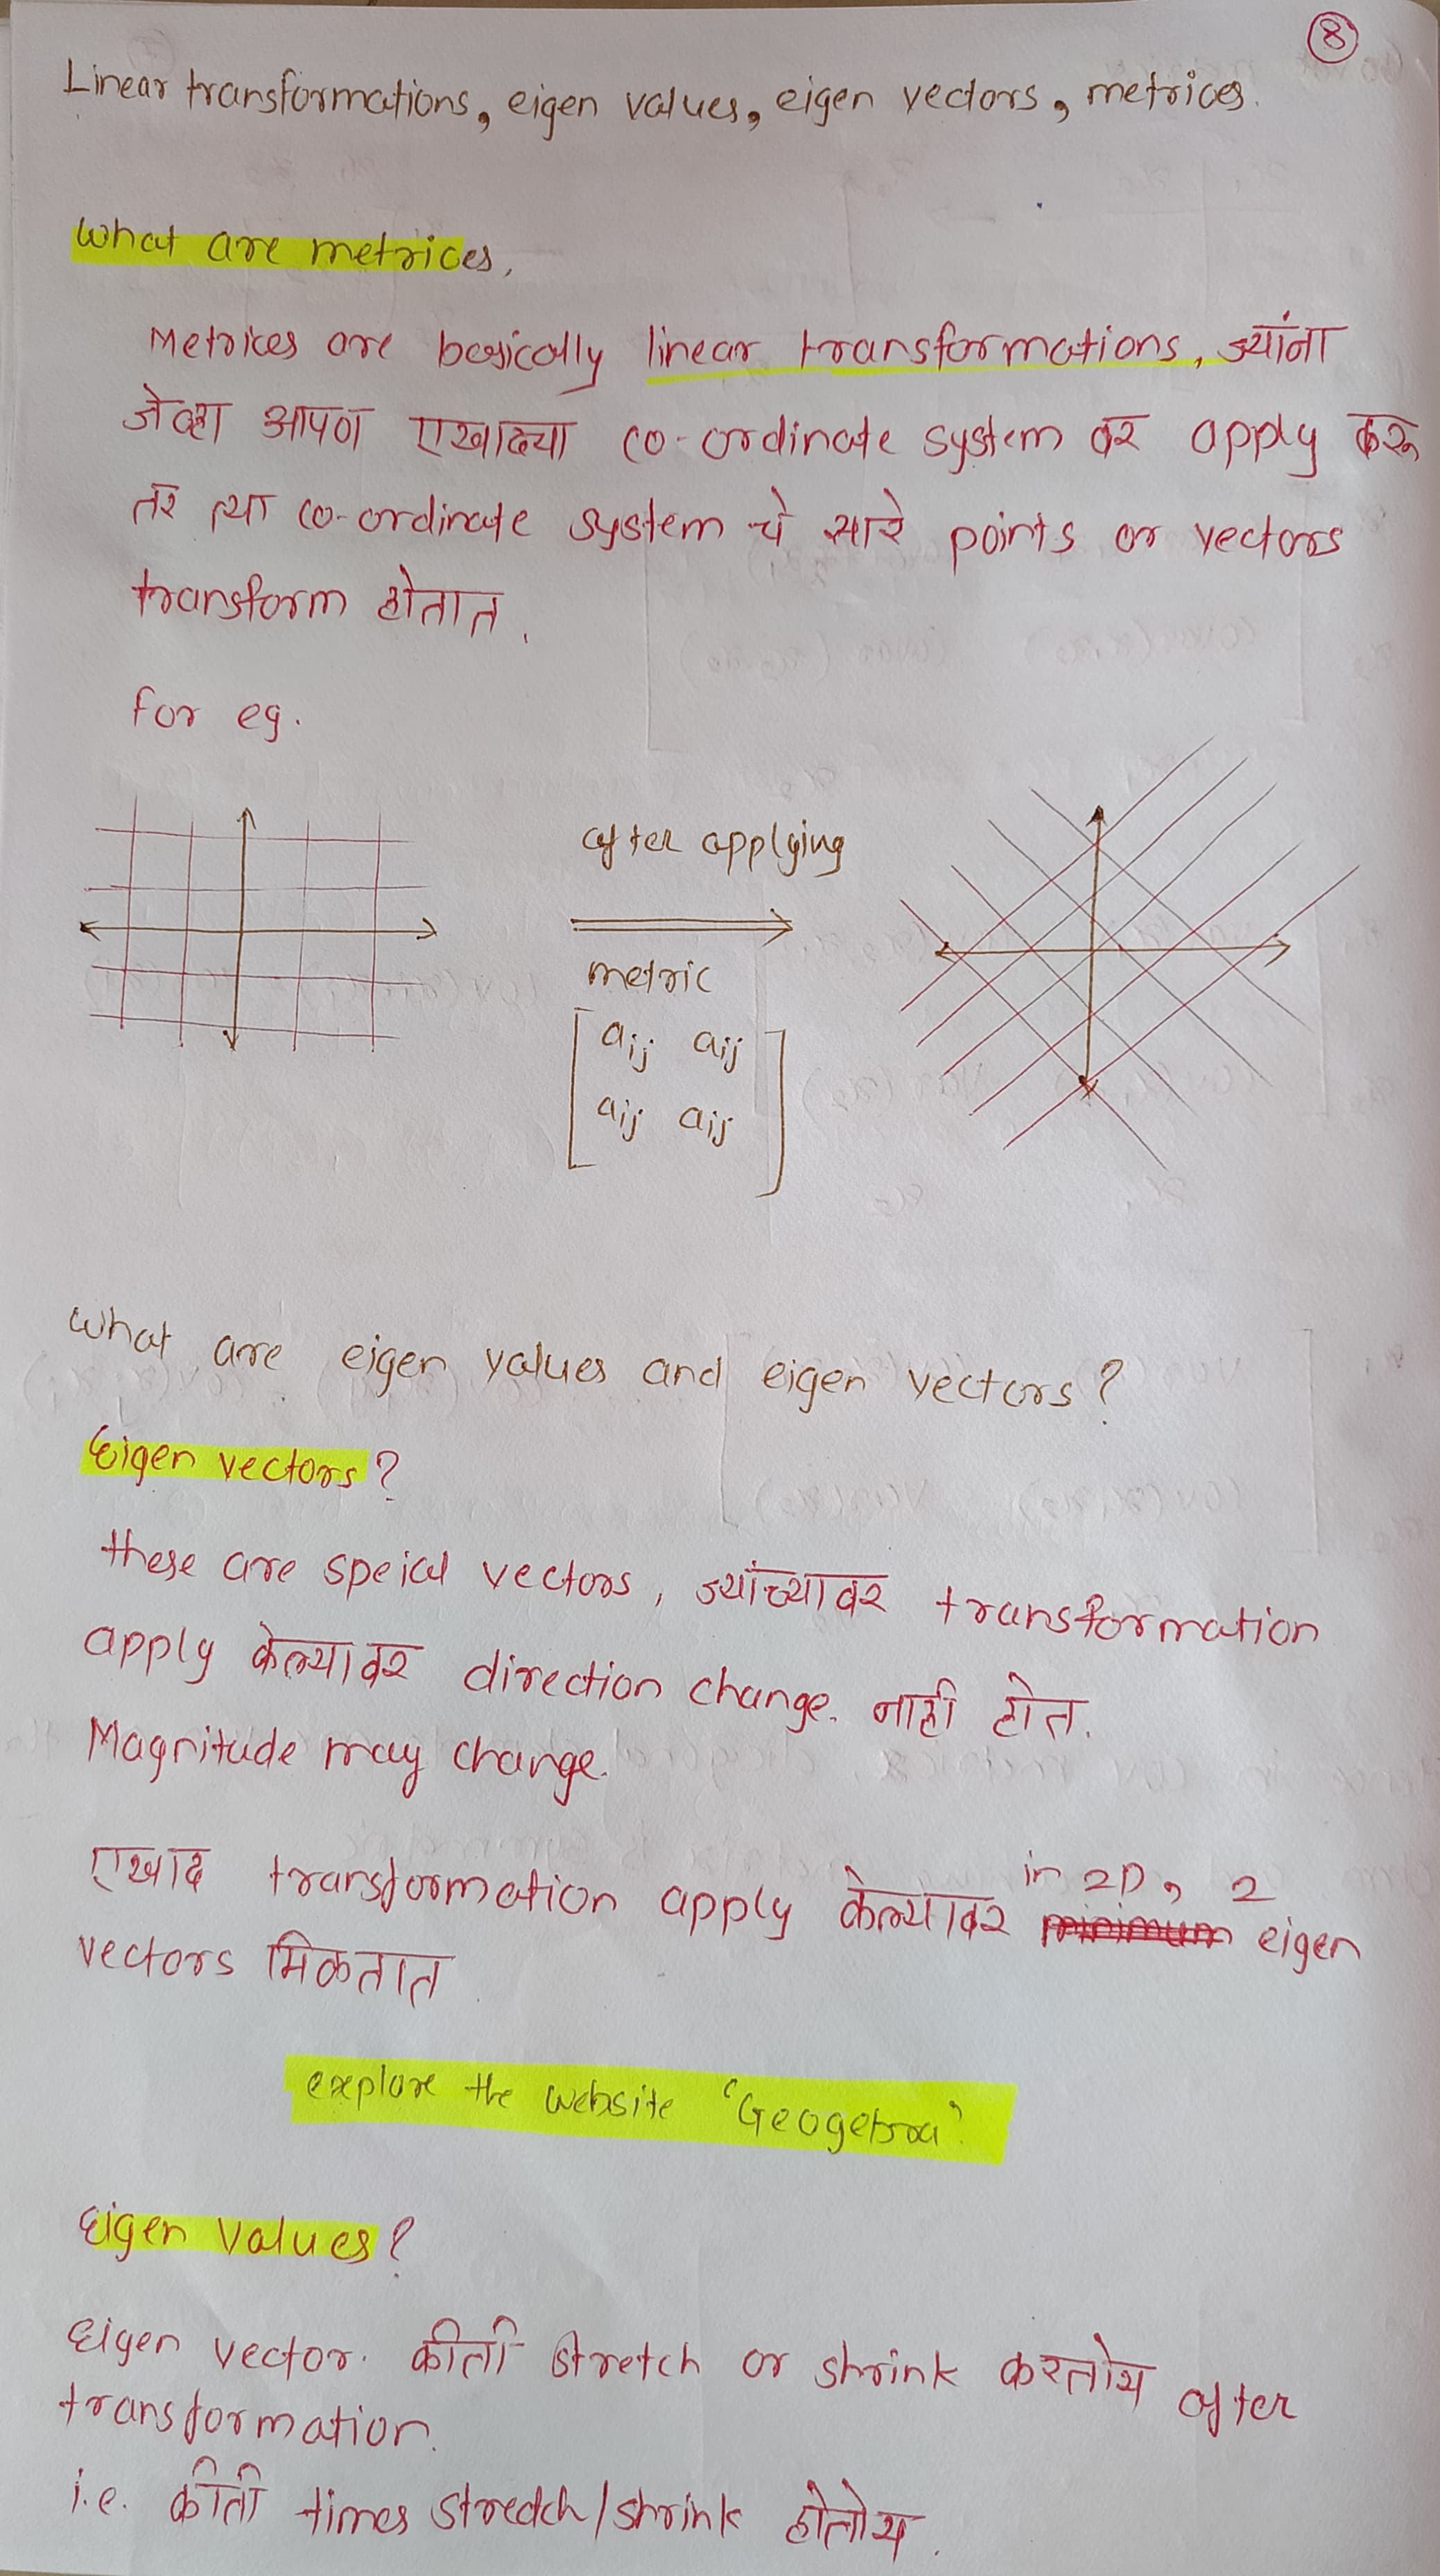 8
Linear transformations, eigen values, eigen vectors, metrices.
What are metrices.
Metrices are basically linear transformations, ज्यांना
जेव्हा आपण एखाद्या co-ordinate system वर apply करू
तर त्या co-ordinate system चे सारे points or vectors
transform होतात.
for eg.
after applying
metric
aij aij
aij aij
What are eigen values and eigen vectors?
Eigen vectors?
these are speical vectors, ज्यांच्यावर transformation
apply केल्यावर direction change. नाही होत.
Magnitude may change.
एखाद transformation apply केल्यावर in 2D, 2 minimum eigen
vectors मिळतात
explore the website 'Geogebra'.
Eigen values?
Eigen vector. कीती stretch or shrink करतोय after
transformation.
i.e. कीती times stretch/shrink होतोय.